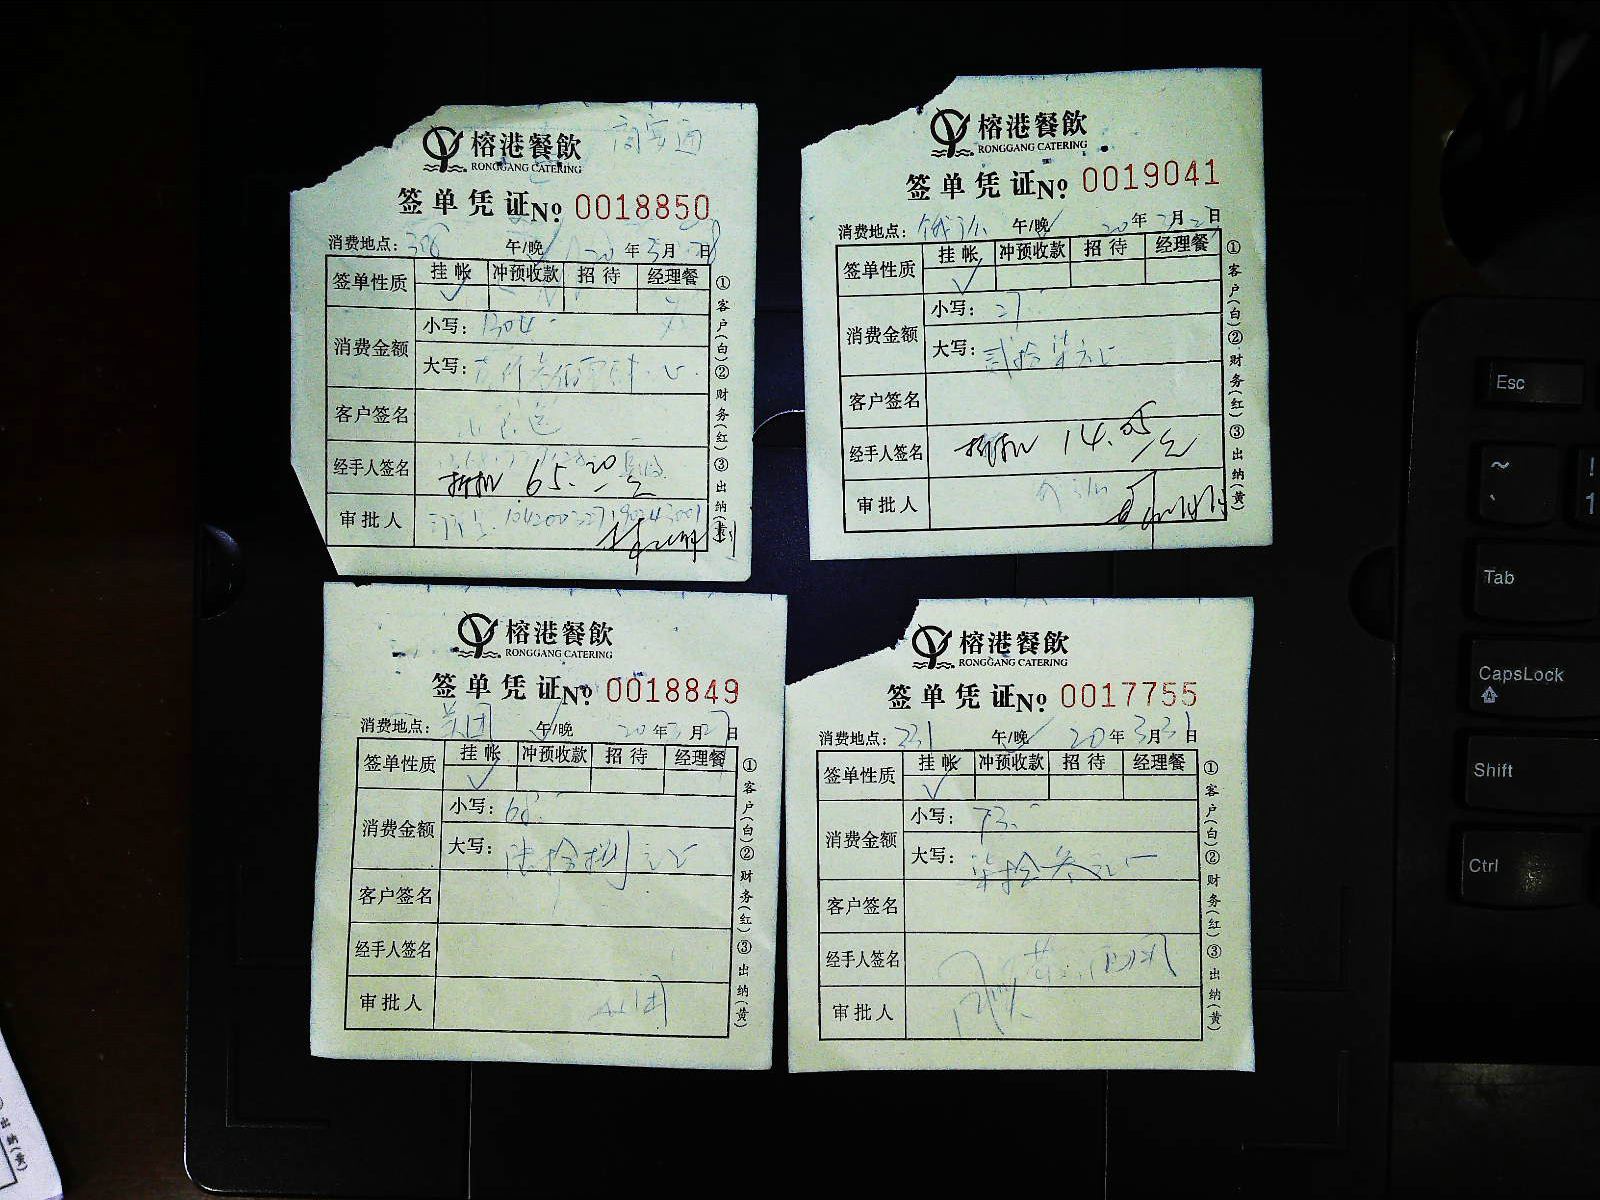 榕港餐飲 商宴通
RONGGANG CATERING
签单凭证 No 0018850
消费地点: 308 午/晚 20年3月28日
签单性质 挂帐 冲预收款 招待 经理餐
消费金额 小写: 1304
大写:
客户签名
经手人签名
折扣 65.20元
审批人
①客户(白)②财务(红)③出纳(黄)
榕港餐飲
RONGGANG CATERING
签单凭证 No 0019041
消费地点: 午/晚 20年 月 日
签单性质 挂帐 冲预收款 招待 经理餐
消费金额 小写: 27
大写: 贰拾柒元正
客户签名
经手人签名 折扣 14.05元
审批人
①客户(白)②财务(红)③出纳(黄)
榕港餐飲
RONGGANG CATERING
签单凭证 No 0018849
消费地点: 美团 午/晚 20年3月27日
签单性质 挂帐 冲预收款 招待 经理餐
消费金额 小写: 68
大写: 陆拾捌元正
客户签名
经手人签名
审批人
①客户(白)②财务(红)③出纳(黄)
榕港餐飲
RONGGANG CATERING
签单凭证 No 0017755
消费地点: 331 午/晚 20年3月31日
签单性质 挂帐 冲预收款 招待 经理餐
消费金额 小写: 73
大写: 柒拾叁元正
客户签名
经手人签名
审批人
①客户(白)②财务(红)③出纳(黄)
Esc
~
` ! 1
Tab
CapsLock
Shift
Ctrl
出纳(黄)